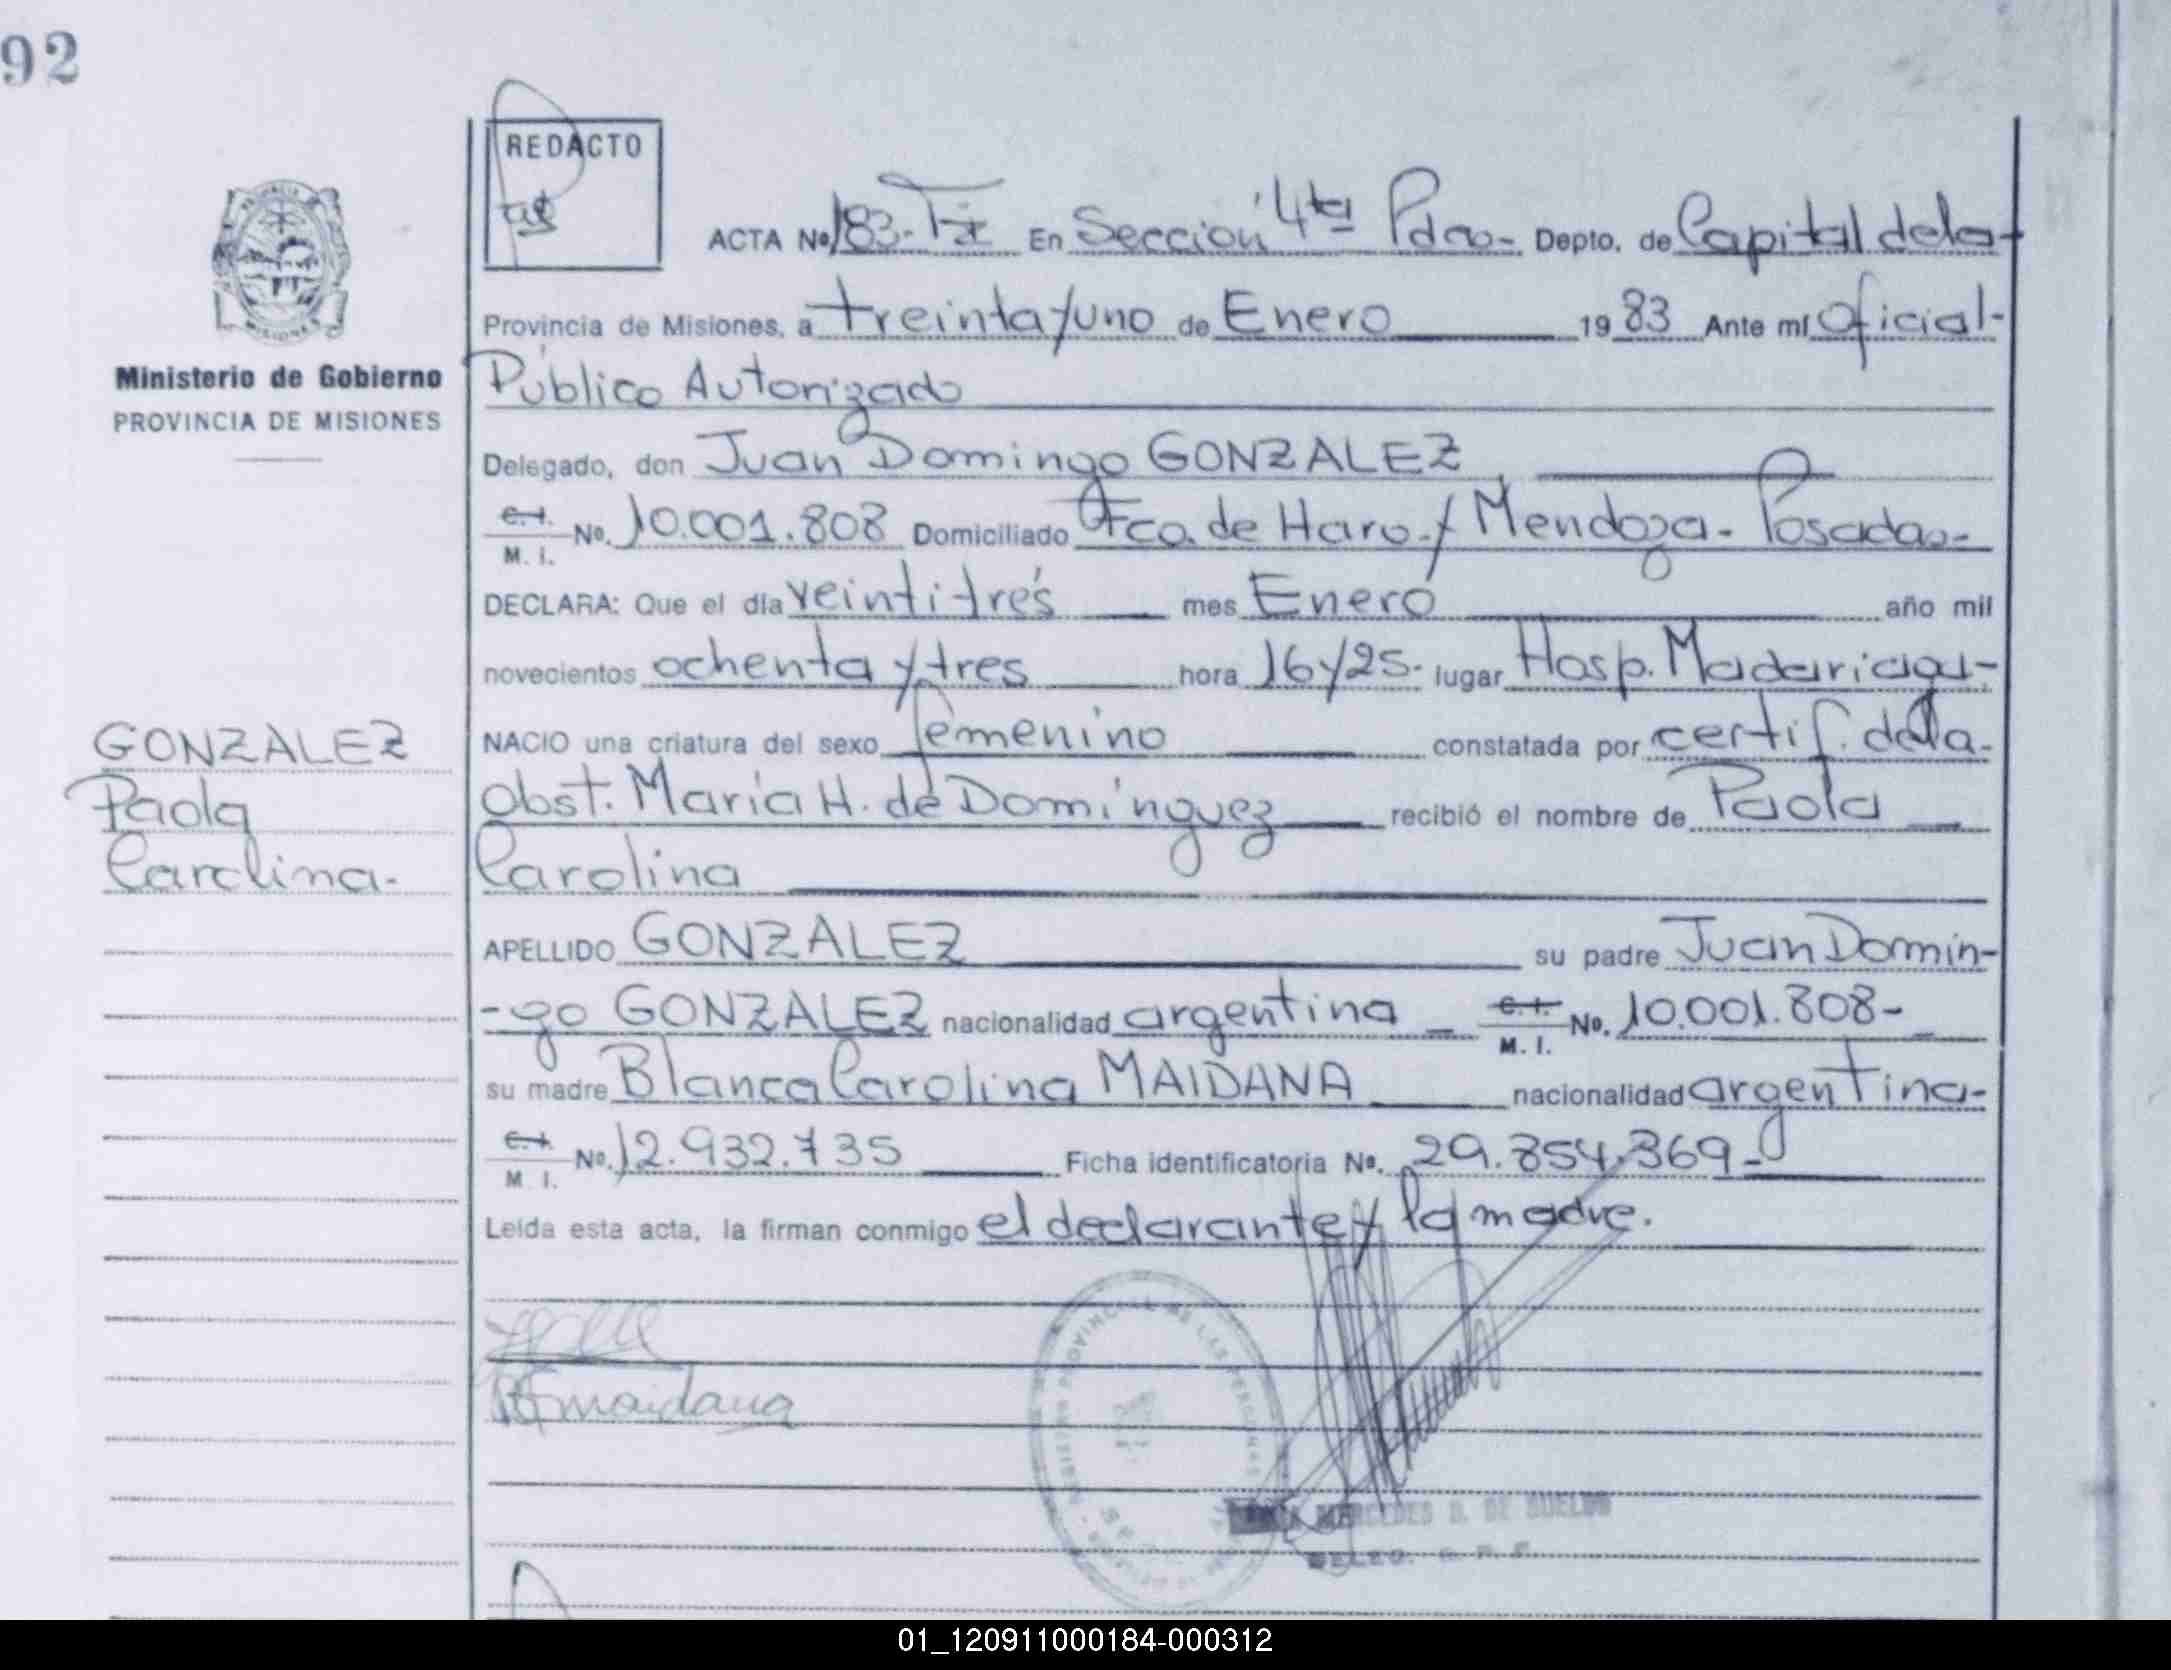 92
REDACTO
ACTA Nº 183-Tº I En Sección 4ta Pdas- Depto. de Capital de la-
Provincia de Misiones, a treinta y uno de Enero 19 83 Ante mí Oficial-
Ministerio de Gobierno
PROVINCIA DE MISIONES
Público Autorizado
Delegado, don Juan Domingo GONZALEZ
C.I.
M. I. Nº. 10.001.808 Domiciliado Fco. de Haro y Mendoza- Posadas-
DECLARA: Que el día veintitrés mes Enero año mil
novecientos ochenta y tres hora 16 y 25- lugar Hosp. Madariaga-
GONZALEZ
Paola
Carolina.
NACIO una criatura del sexo femenino constatada por certif. de la
obst. María H. de Domínguez recibió el nombre de Paola
Carolina
APELLIDO GONZALEZ su padre Juan Domin-
-go GONZALEZ nacionalidad argentina C.I.
M. I. Nº. 10.001.808-
su madre Blanca Carolina MAIDANA nacionalidad argentina-
C.I.
M. I. Nº. 12.932.735 Ficha identificatoria Nº. 29.854.369-
Leída esta acta, la firman conmigo el declarante y la madre.
maidana
MERCEDES
01_120911000184-000312